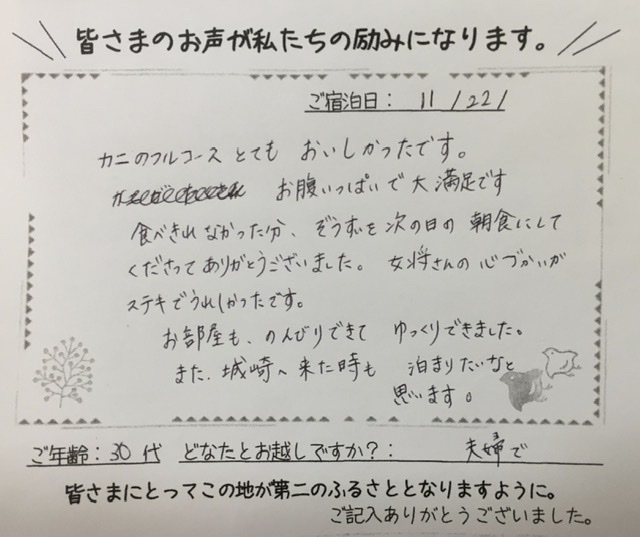 皆さまのお声が私たちの励みになります。
ご宿泊日: 11/22/
カニのフルコース とても おいしかったです。
お腹いっぱいで大満足です
食べきれなかった分、ぞうすいを次の日の朝食にして
くださってありがとうございました。女将さんの心づかいが
ステキでうれしかったです。
お部屋も、のんびりできて ゆっくりできました。
また、城崎へ来た時も 泊まりたいなと
思います。
ご年齢:30代 どなたとお越しですか?: 夫婦で
皆さまにとってこの地が第二のふるさととなりますように。
ご記入ありがとうございました。